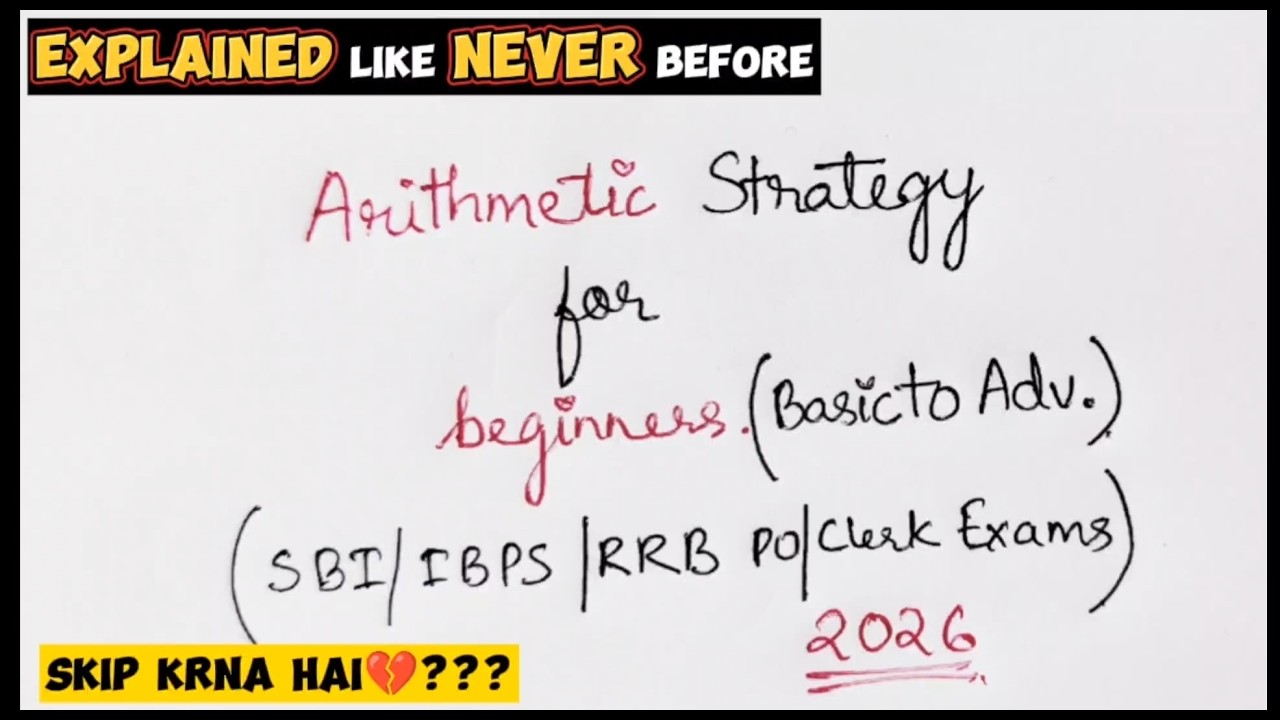 EXPLAINED LIKE NEVER BEFORE
Arithmetic Strategy
for
beginners. (Basic to Adv.)
(SBI/IBPS/RRB PO/Clerk Exams)
2026
SKIP KRNA HAI💔???